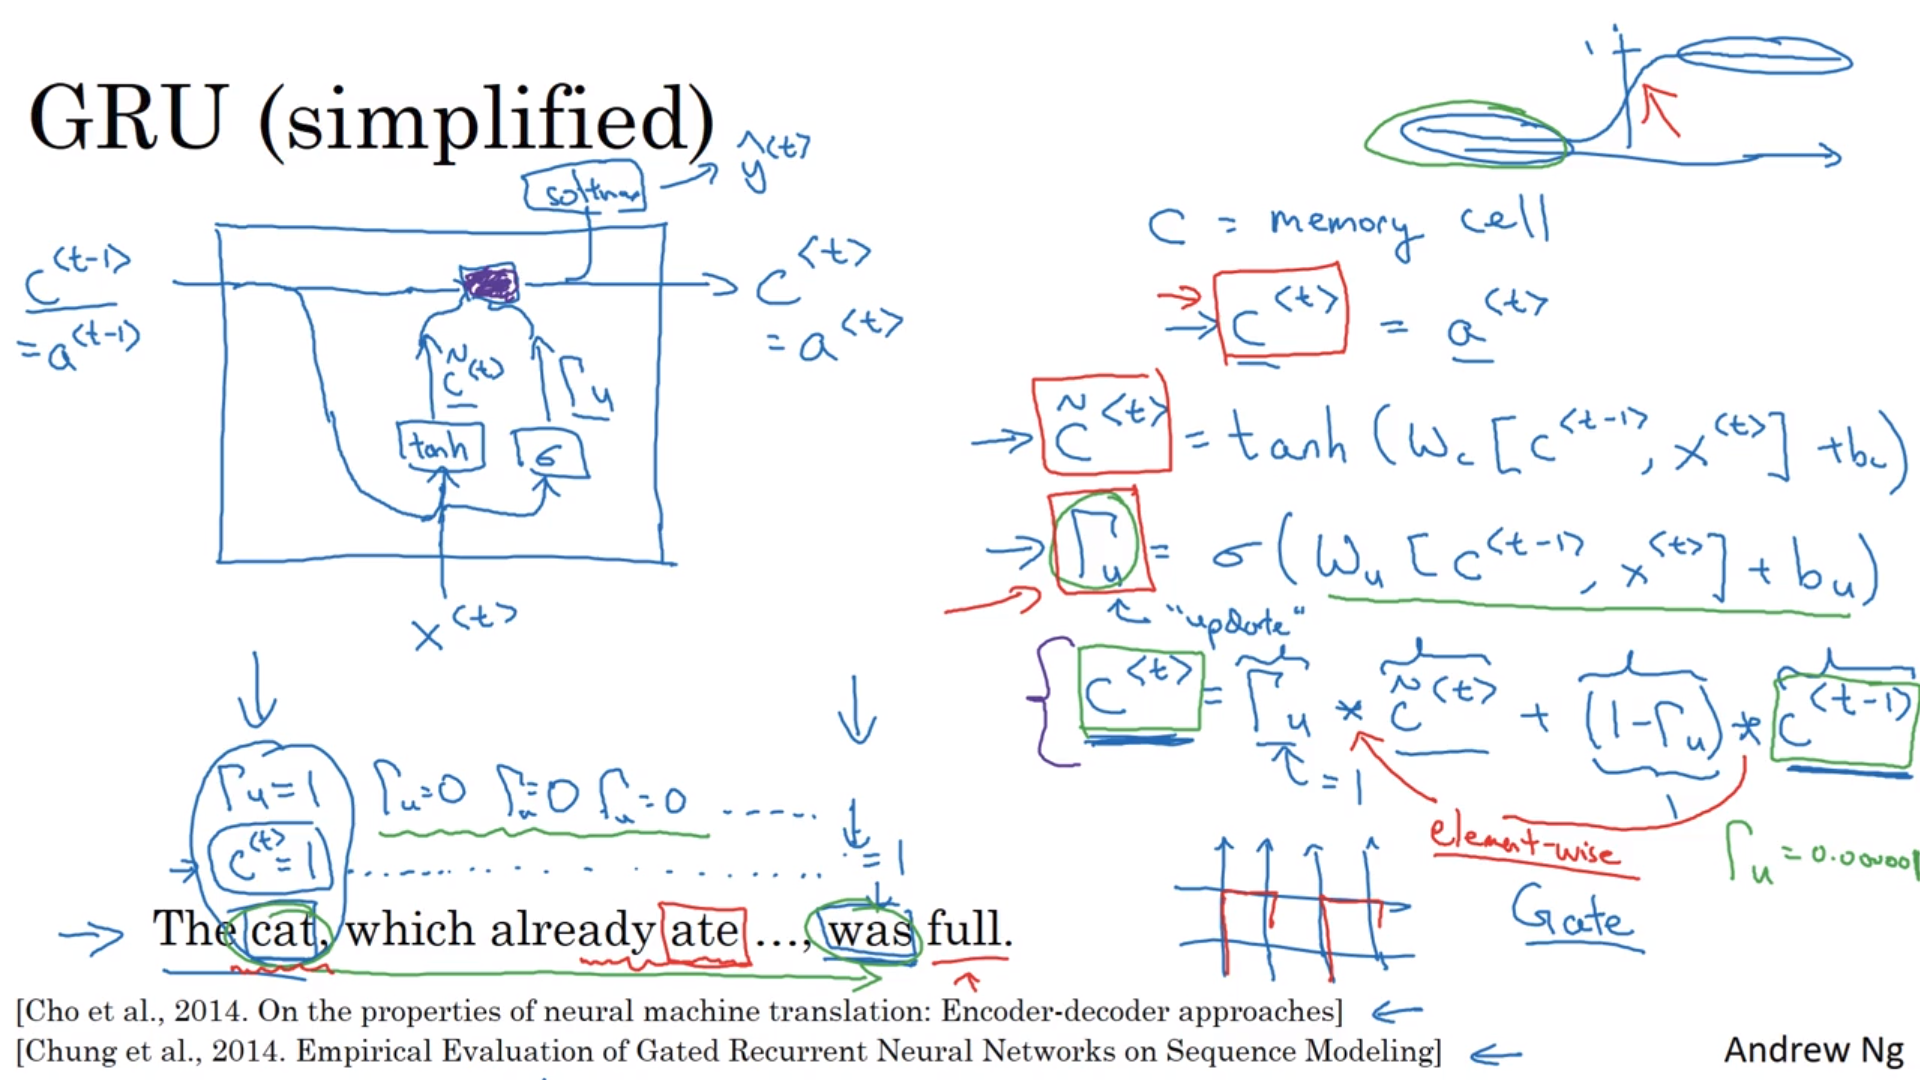 GRU (simplified)
softmax → ŷ<t>
c<t-1>
= a<t-1>
c<t>
= a<t>
c̃<t>
Γu
tanh
σ
x<t>
1
c = memory cell
c<t> = a<t>
c̃<t> = tanh (Wc [c<t-1>, x<t>] + bc)
Γu = σ (Wu [c<t-1>, x<t>] + bu)
"update"
c<t> = Γu * c̃<t> + (1-Γu) * c<t-1>
= 1
element-wise
Gate
Γu=1 Γu=0 Γu=0 Γu=0 -----
c<t>=1 ........ = 1
The cat, which already ate …, was full.
[Cho et al., 2014. On the properties of neural machine translation: Encoder-decoder approaches]
[Chung et al., 2014. Empirical Evaluation of Gated Recurrent Neural Networks on Sequence Modeling]
Andrew Ng